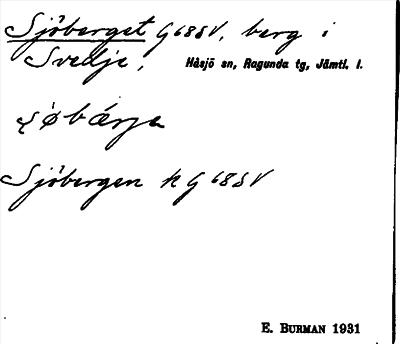 Sjöberget G68SV, berg i
Svedje, Håsjö sn, Ragunda tg, Jämtl. l.
Sjöbergen k G68SV
E. BURMAN 1931